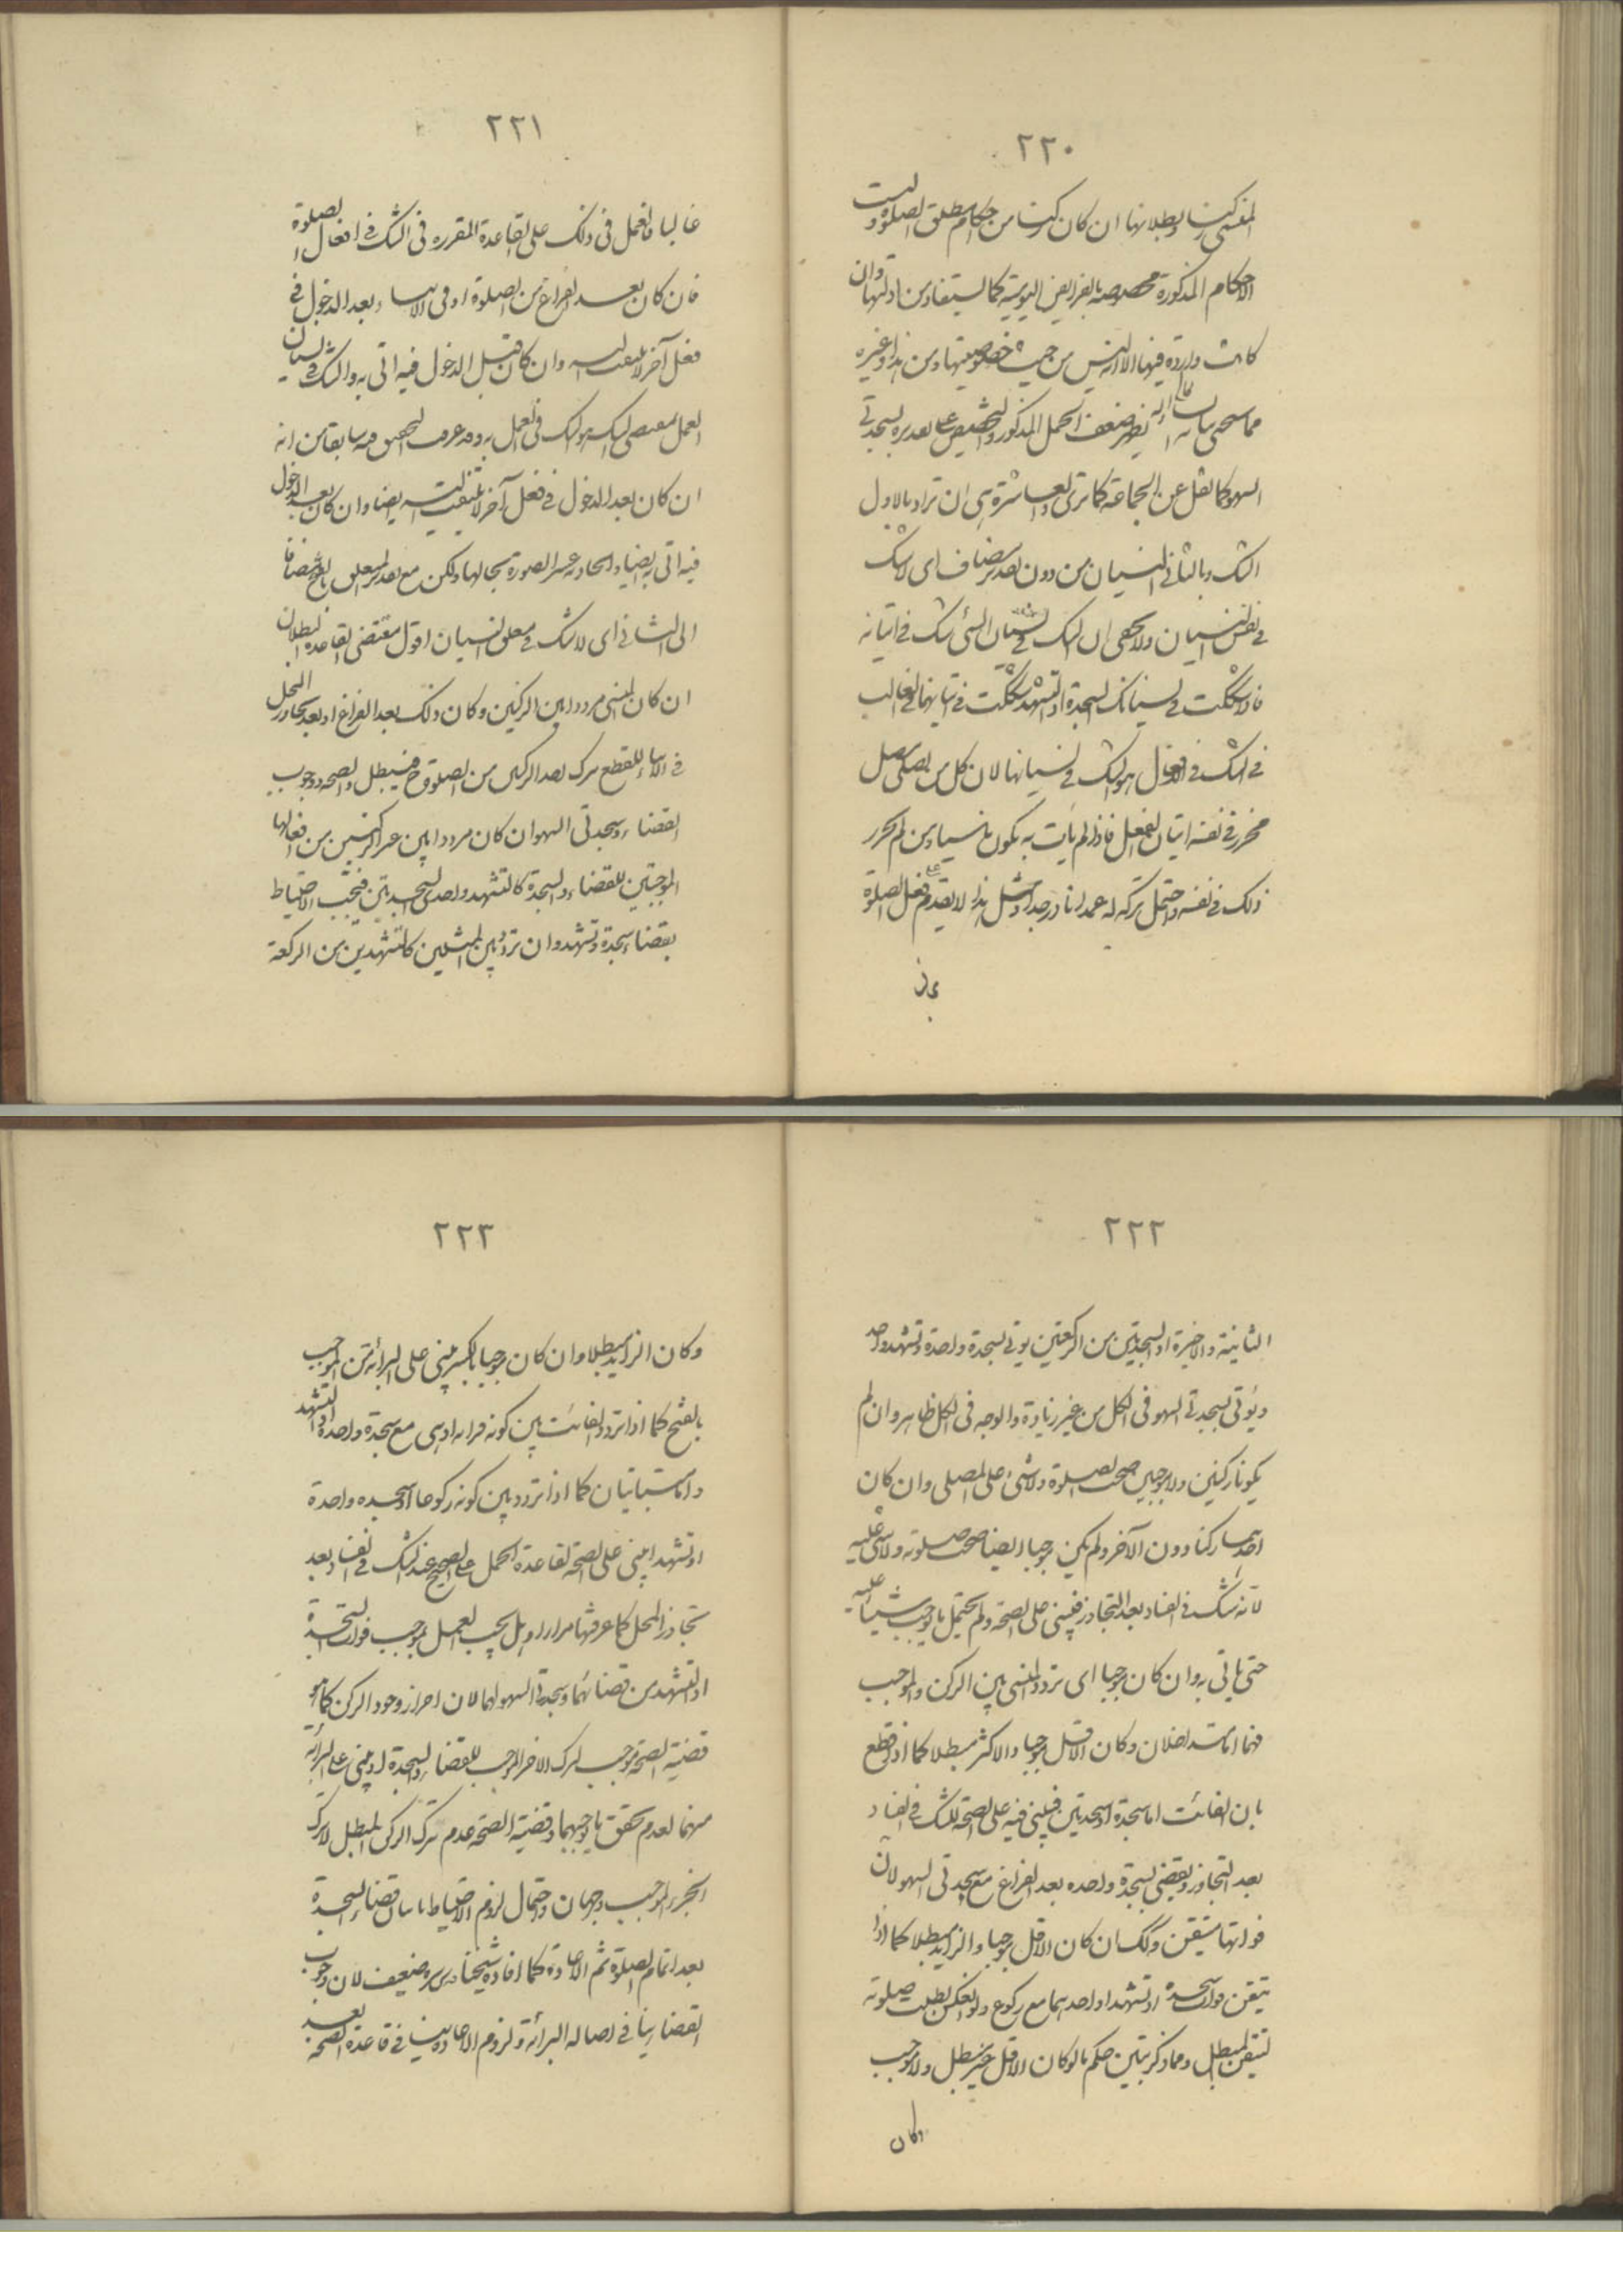 ٢٢٠
المنسى ركنا وبطلانها ان كان ركنا من احكام مطلق الصلوة وليست
الاحكام المذكورة مخصوصة بالفرايض اليومية كما يستفاد من ادلتها وان
كانت واردة فيها الا انه ليس من حيث خصوصيتها ومن هذا وغيره
مما سيجئ بيانه يظهر ضعف الحمل المذكور والتخصيص بسجدتى
السهو كما نقل عن الجماعة كما ترى والعاشرة هى ان تراد بالاول
الشك وبالثانى النسيان من دون تقدير مضاف اى لا شك
فى نفس النسيان ولا يخفى ان الشك فى نسيان الشئ شك فى اتيانه
فاذا شككت فى نسيانك السجدة او التشهد شككت فى اتيانهما والغالب
فى الشك فى الافعال هو الشك فى نسيانها لان كل من يصلى
محرز فى نفسه اتيان الفعل فاذا لم يأت به يكون ناسيا ومن لم يحرز
ذلك فى نفسه واحتمل تركه له عمدا نادر جدا ومثل هذا لا يقدم على فعل الصلوة
٢٢١
غالبا فالعمل فى ذلك على القاعدة المقرره فى الشك فى افعال الصلوة
فان كان بعد الفراغ من الصلوة او فى الاثناء وبعد الدخول فى
فعل آخر لا يلتفت اليه وان كان قبل الدخول فيه اتى به والشك فى نسيان
العمل بمقتضى الشك هو الشك فى العمل به وقد عرفت التحقيق فيه سابقا من انه
ان كان بعد الدخول فى فعل آخر لا يلتفت اليه ايضا وان كان الدخول
فيه اتى به ايضا والحادية عشر الصورة بحالها ولكن مع تقدير المتعلق بالفتح مضافا
الى الثانى اى لا شك فى متعلق النسيان اقول مقتضى القاعدة البطلان
ان كان المنسى مرددا بين الركنين وكان ذلك بعد الفراغ او بعد تجاوز المحل
فى الاثناء للقطع بترك احد الركنين من الصلوة فتبطل والصحة ووجوب
القضاء وسجدتى السهو ان كان مرددا بين غير الركنين من افعالها
الموجبتين للقضاء والسجدة كالتشهد واحدى السجدتين فيجب الاحتياط
بقضاء سجدة وتشهد وان تردد بين المثلين كالتشهدين من الركعة
٢٢٢
الثانية والاخيرة او السجدتين من الركعتين يوتى بسجدة واحدة وتشهد واحد
ويؤتى بسجدتى السهو فى الكل من غير زيادة والوجه فى الكل ظاهر وان لم
يكونا ركنين ولا موجبين صحت الصلوة ولا شئ على المصلى وان كان
احدهما ركنا دون الآخر ولم يكن موجبا ايضا صحت صلوته ولا شئ عليه
لانه شك فى الفساد بعد التجاوز فيبنى على الصحة ولم يحتمل ما يوجب شيئا عليه
حتى ياتى به وان كان موجبا اى تردد المنسى بين الركن والموجب
فهما اما متداخلان وكان الاقل موجبا والاكثر مبطلا كما اذا قطع
بان الفائت اما سجدة او سجدتين فيبنى فيه على الصحة للشك فى الفساد
بعد التجاوز ويقضى سجدة واحدة بعد الفراغ مع سجدتى السهو لان
فواتها متيقن وكذلك ان كان الاقل موجبا والزايد مبطلا كما اذا
تيقن فوات سجدة او تشهد او احدهما مع ركوع ولو انعكس بطلت صلوته
لتيقن المبطل ومما ذكر يتبين حكم ما لو كان الاقل غير مبطل ولا موجب
وكان
٢٢٣
وكان الزايد مبطلا وان كان موجبا بالكسر يبنى على البرائة من الموجب
بالفتح كما اذا تردد الفائت بين كونه قراءة او هى مع سجدة واحدة او التشهد
واما متباينان كما اذا تردد بين كونه ركوعا او سجده واحدة
او تشهدا يبنى على الصحة لقاعدة الحمل على الصحيح عند الشك فى الفساد بعد
تجاوز المحل كما عرفتها مرارا وهل يجب العمل بموجب فوات السجدة
او التشهد من قضائهما وسجدتى السهو لهما لان احراز وجود الركن كما هو
قضية الصحة موجب لترك الاخر الموجب للقضاء والسجدة او يبنى على البرائة
منهما لعدم تحقق ما يوجبهما وقضية الصحة عدم ترك الركن المبطل لا ترك
الجزء الموجب وجهان واحتمال لزوم الاحتياط باتيان قضاء السجدة
بعد اتمام الصلوة ثم الاعادة كما افاده شيخنا ضعيف لان وجوب
القضا ينافى اصالة البرائة ولزوم الاعادة ينافى قاعدة الصحة بعد